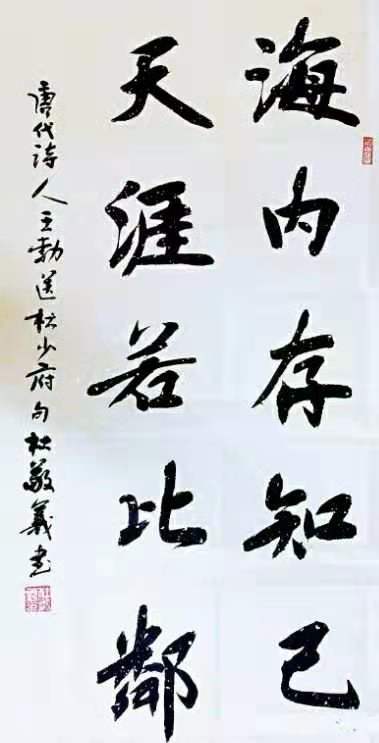 海内存知己
天涯若比鄰
唐代诗人王勃送杜少府句杜敬義书